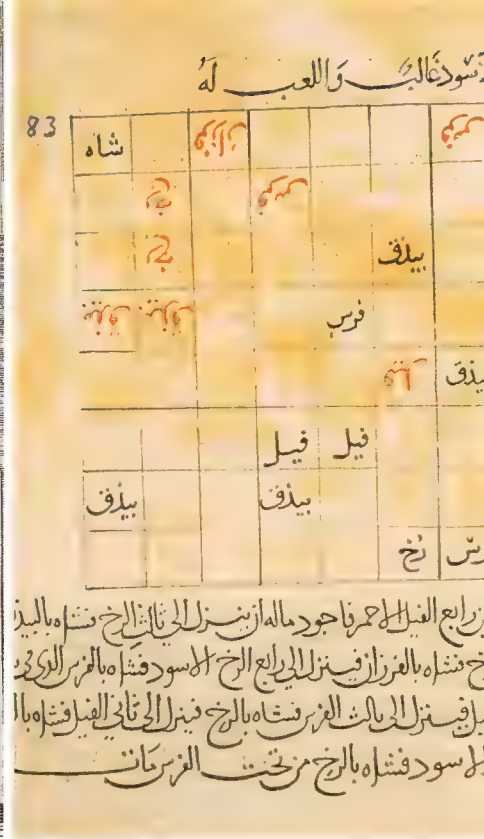 لأسود غالبٌ وَاللعب لَهُ
83
شاه فرزان فرس
رخ فرس
رخ بيذق
بيذق بيذق فرس
فيل بيذق
فيل فيل
بيذق بيذق
رخ فرس
رابع الفيل الاحمر فاجود ماله ان ينزل الى ثالث الرخ فشاه بالبيذ
فشاه بالفرزان فينزل الى رابع الرخ الاسود فشاه بالفرس الذى فى
فينزل الى ثالث الفرس فشاه بالرخ فينزل الى ثانى الفيل فشاه با
الاسود فشاه بالرخ من تحت الفرس مات